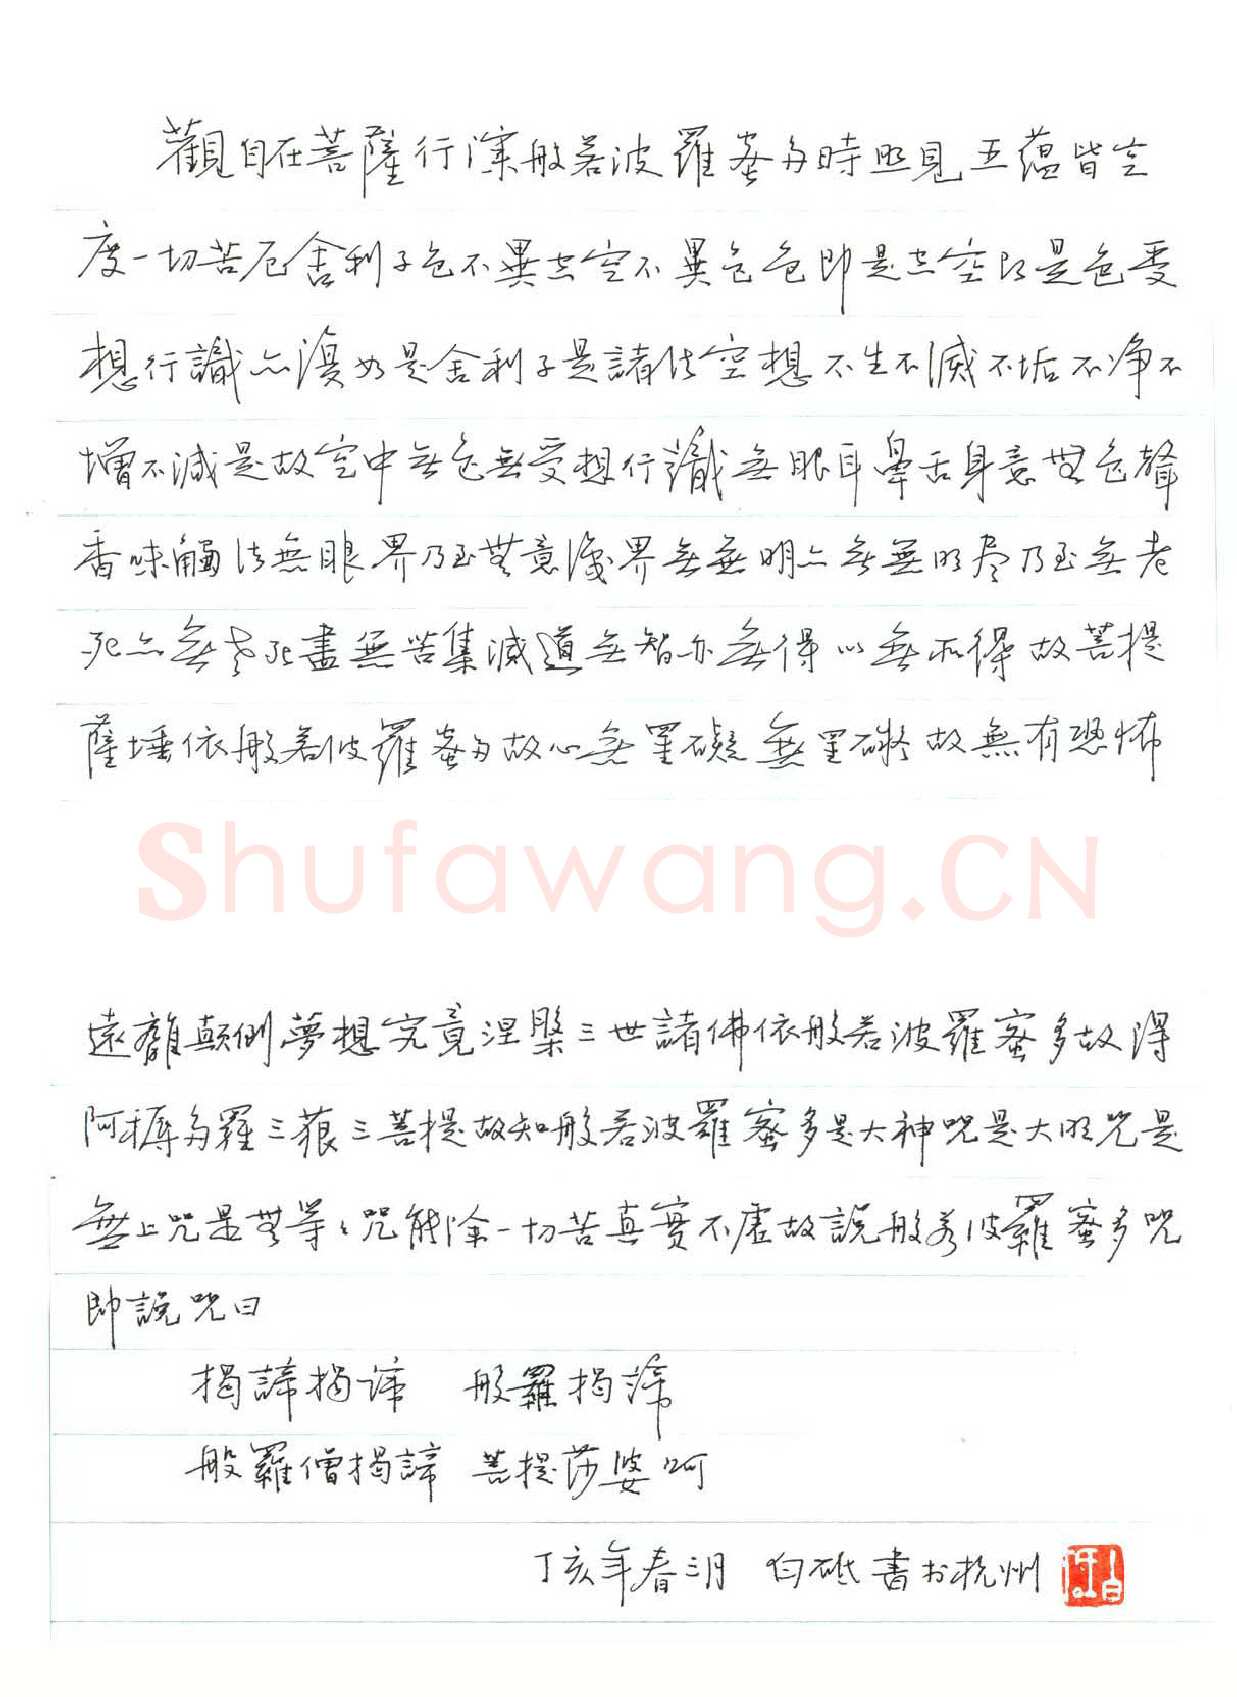 觀自在菩薩行深般若波羅蜜多時照見五蘊皆空
度一切苦厄舍利子色不異空空不異色色即是空空即是色受
想行識亦復如是舍利子是諸法空想不生不滅不垢不净不
增不減是故空中無色無受想行識無眼耳鼻舌身意無色聲
香味觸法無眼界乃至無意識界無無明亦無無明尽乃至無老
死亦無老死盡無苦集滅道無智亦無得以無所得故菩提
薩埵依般若波羅蜜多故心無罣礙無罣礙故無有恐怖
Shufawang.CN
遠離顛倒夢想究竟涅槃三世諸佛依般若波羅蜜多故得
阿耨多羅三藐三菩提故知般若波羅蜜多是大神咒是大明咒是
無上咒是無等等咒能除一切苦真實不虛故說般若波羅蜜多咒
即說咒曰
揭諦揭諦 般羅揭諦
般羅僧揭諦 菩提莎婆呵
丁亥年春三月 白砥書於杭州